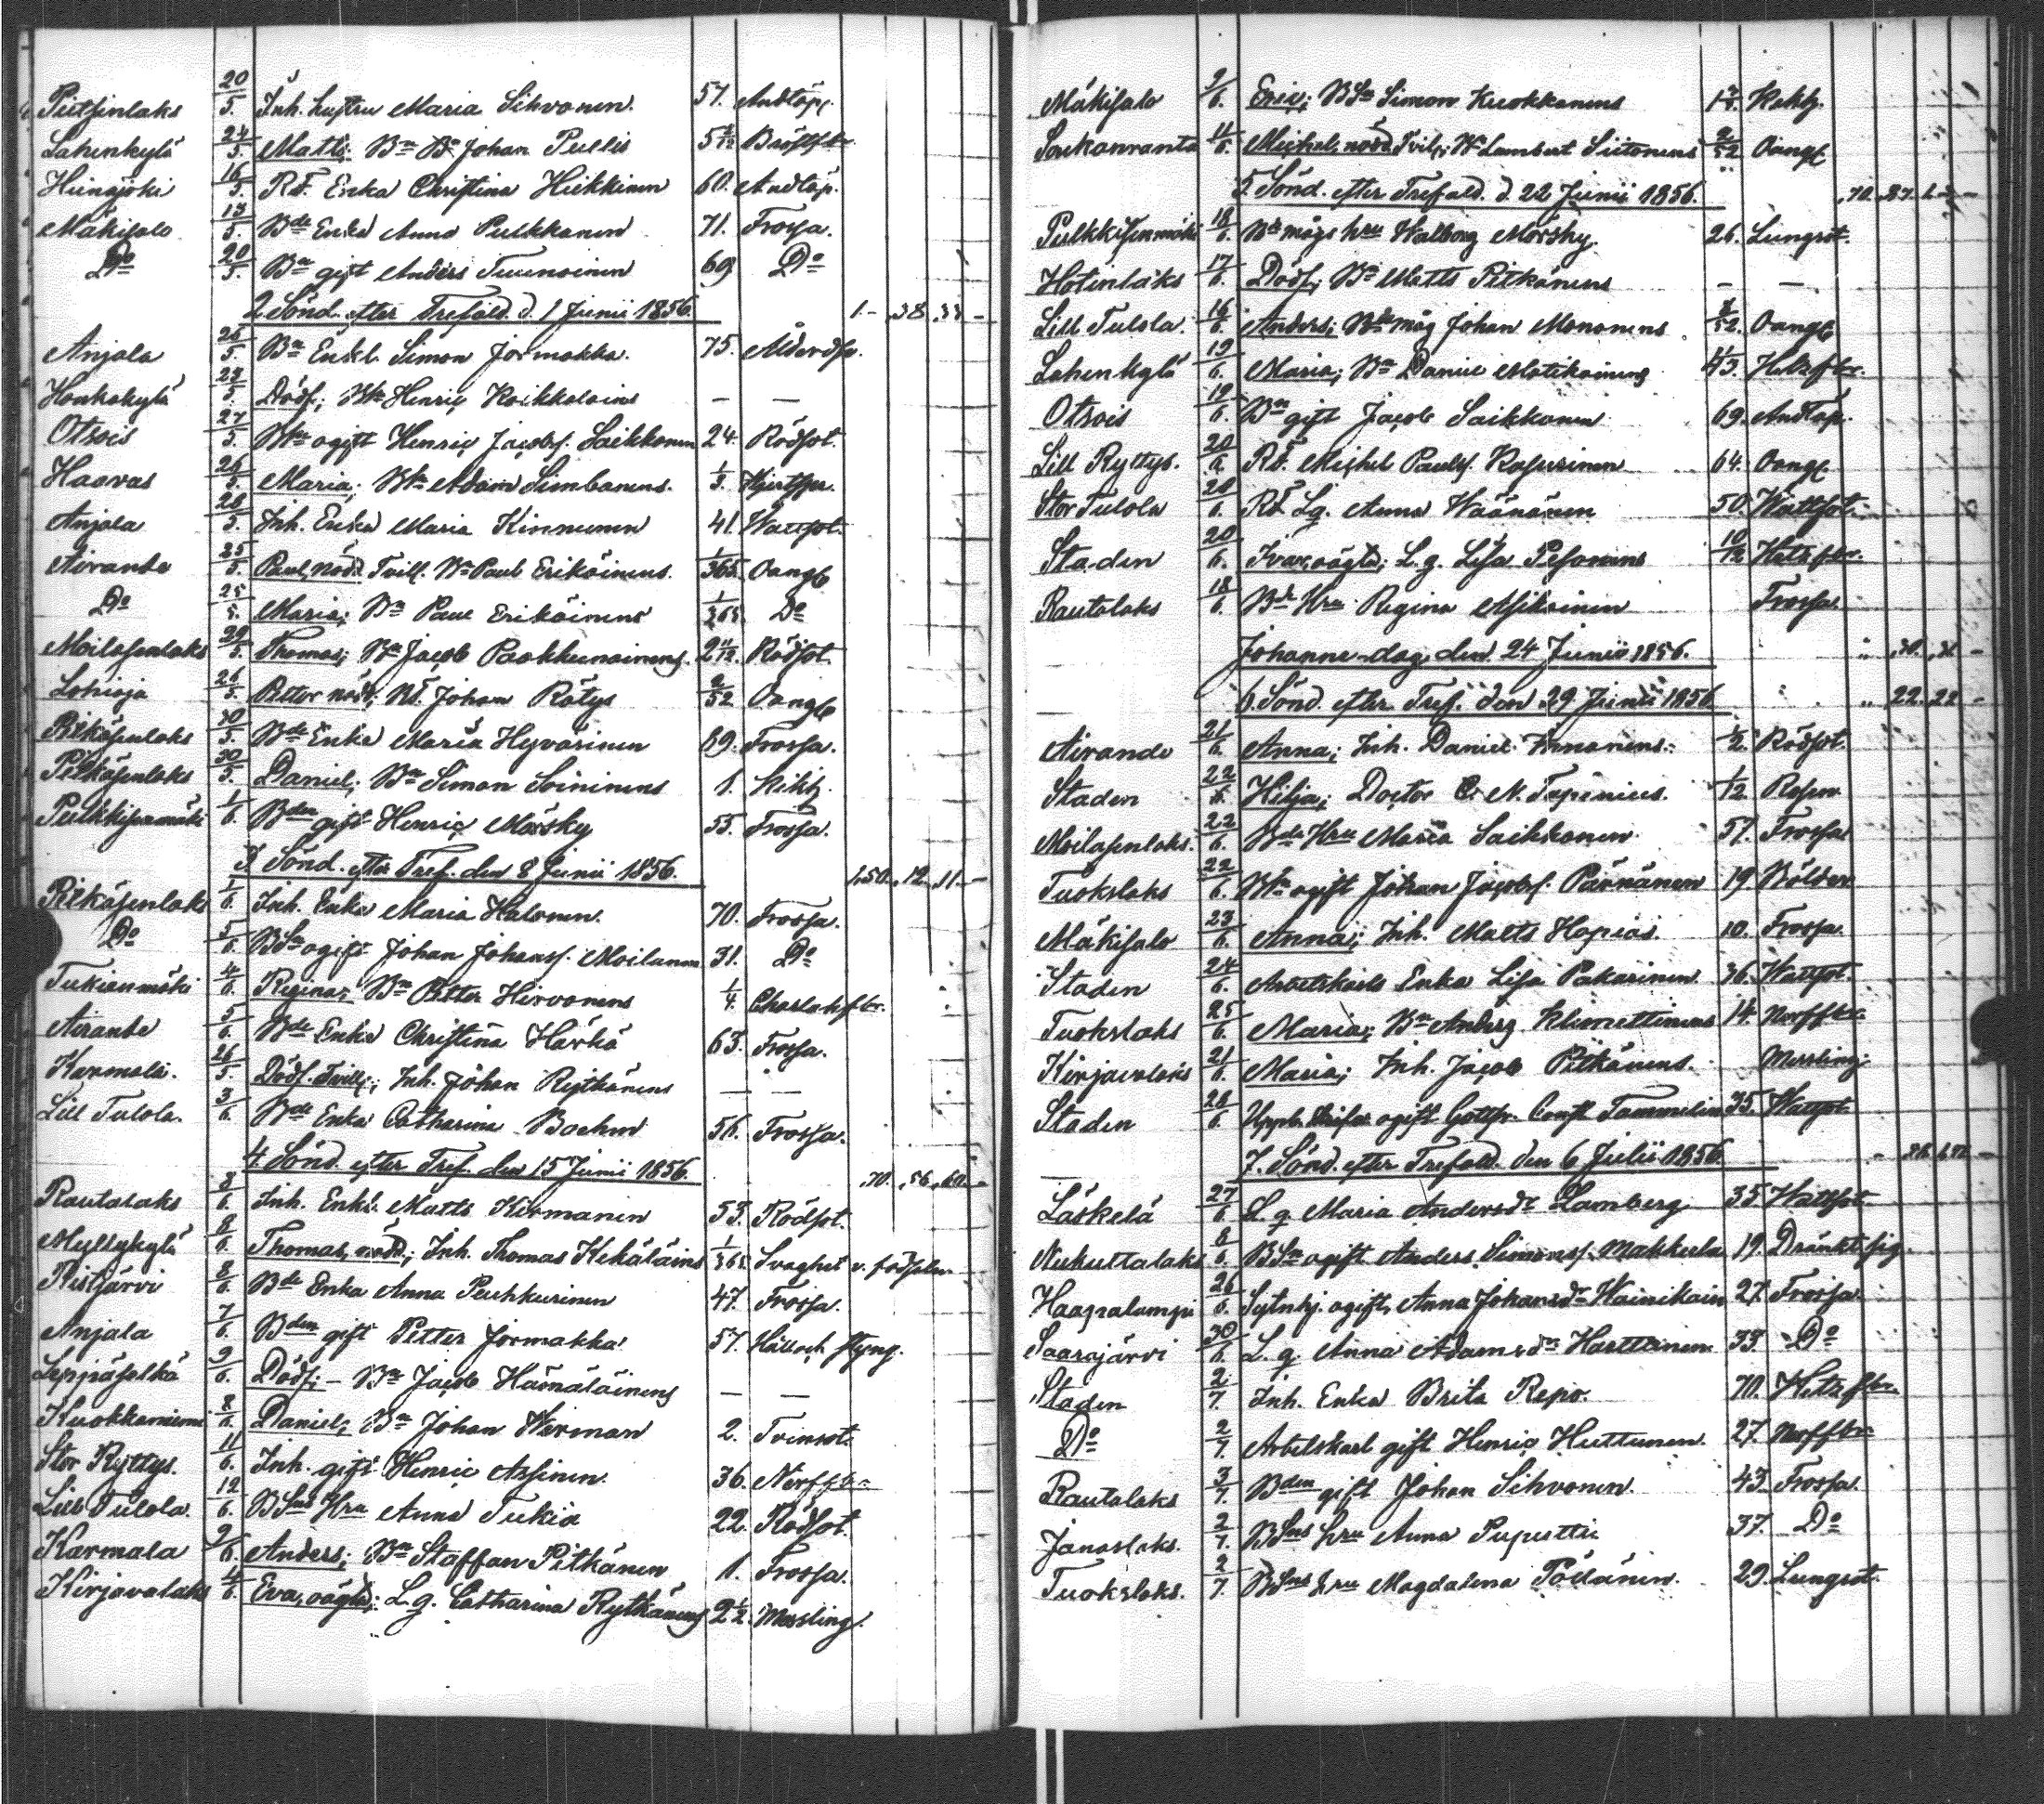 Pitkänlaks 20/5. Inh. hustru Maria Sihvonen. 57. Andtäp.
Lahenkylä 24/5. Matts; Bn Johan Pullis Bröstfbr.
Hiengjöki 16/5. Rd. Enka Christina Heikkinen 60. Andtäp.
Mäkisalo 13/5. Bde Enka Anna Pulkkanen 71. Frossa.
Do 20/5. Bn gift Anders Tuunainen 69 Do
2 Sönd. efter Trefald. d. 1 Junii 1856. 1.- .38. 33 -
Anjala 25/5. Bn Enkl. Simon Jormakka. 75. Ålderdsv.
Honkakylä 23/5. Dödf; Henric Kaikkalains — —
Otsois 27/5. ogift Henric Jacobss. Saikkonen 24. Rödsot.
Haavas 26/5. Maria; Adam Simbanens.
Anjala 28/5. Inh. Enka Maria Kinnunen 41. Wattsot.
Airanne 25/5. Paul, nödd. Tvill. Bn Paul Erikäinens. 1/365. Oangf
Do 25/5. Maria; Bn Paul Erikäinens 1/365. Do
Moilasenlaks 29/5. Thomas; Bn Jacob Paakkunainens. 2 11/12. Rödsot.
Lohioja 26/5. Petter nödd; Johan Rätys 2/52 Oangf
Pitkäsenlaks 30/5. Bde Enka Maria Hyvärinen 69. Frossa.
Pitkäsenlaks 30/5. Daniel; Bn Simon Soininens 1. Kikh.
Pulkkisenmäki 1/6. Bden gift Henric Mörsky 55. Frossa.
3 Sönd. efter Tref. den 8 Junii 1856. 1,50. ,12. 11. -
Pitkäsenlaks 1/6. Inh. Enka Maria Halonen. 70. Frossa.
Do 5/6. BSn ogift Johan Johanss. Moilanen 31. Do
Tukianmäki 4/6. Regina; Bn Petter Hirvonens 1/4. Charlaksfbr.
Airanne 5/6. Bde Enka Christina Härkä 63. Frossa.
Karmala. 26/5. Dödf. Tvill; Inh. Johan Rytkönens — —
Lill Tulola. 3/6. Bde Enka Catharina Boehm 56. Frossa.
4 Sönd. efter Tref. den 15 Junii 1856. ,70. ,56. ,60. -
Rautalaks 8/6. Inh. Enkl. Matts Kirmanen 53. Rödsot.
Myllykylä 8/6. Thomas, nödd; Inh. Thomas Kekäläins 1/365 Svaghet v. födseln
Ristjärvi 8/6. Bde Enka Anna Peuhkurinen 47. Frossa.
Anjala 7/6. Bden gift Petter Jormakka 57. Håll och styng.
Leppäselkä 9/6. Dödf; - Bn Jacob Hämäläinens — —
Kuokkaniemi 8/6. Daniel; Bn Johan Wirman 2. Tvinsot.
Stor Ryttys. 11/6. Inh. gift Henric Assinen. 36. Nerffbr
Lill Tulola. 12/6. BSns Hru Anna Tukia 22. Rödsot.
Karmala 9/6. Anders; Bn Staffan Pitkänen 1. Frossa.
Kirjavalaks 4/6. Eva, oägta; L. q. Catharina Rytkönens 2 1/2. Messling.
Mäkisalo 9/6. Eric; BSn Simon Kuokkanens Kikh.
Sorkanranta 11/6. Michel, nödd. Tvill; Lambert Siitonens 2/52 Oangf
5 Sönd. efter Trefald. d. 22 Junii 1856.
Pulkkisenmäki 18/6. Bde mågs hru Walborg Mörsky. 26. Lungsot.
Hotinlaks 17/6. Dödf; Bn Matts Pitkänens — —
Lill Tulola. 16/6. Anders; måg Johan Mononens Oangf
Lahenkylä 19/6. Maria; Bn Daniel Matikainens Hetzfbr.
Otsois 19/6. Bn gift Jacob Saikkonen 69. Andtäp.
Lill Ryttys. 20/6. Michel Paulss. Kasurinen 64. Oangf.
Stor Tulola 20/6. Lq. Anna Wäänänen 50. Wattsot.
Staden 20/6. Ivar, oägta; L. q. Lisa Pesonens 10/12 Hetzfbr.
Rautalaks 18/6. Bde Hru Regina Asikainen Frossa.
Johanne-dag, den 24 Junii 1856. „ ,30. ,31 -
6. Sönd. efter Tref. den 29 Junii 1856. „ ,22. ,22 -
Airanne 21/6. Anna; Inh. Daniel Innanens. 1/2. Rödsot.
Staden 22/6. Hilja; Doctor C. N. Topinius. 1/12. Resen
Moilasenlaks. 22/6. Bde Hru Maria Saikkonen 57. Frossa
Tuokslaks 22/6. ogift Johan Jacobss. Pärnänen 19. Bölder
Mäkisalo 23/6. Anna; Inh. Matts Hapias. 10. Frossa.
Staden 24/6. Arbetskarls Enka Lisa Pakarinen 36. Wattsot.
Tuokslaks 25/6. Maria; Bn Anders Klimettinens 14. Nerffbr
Kirjavalaks 21/6. Maria; Inh. Jacob Pitkänens. Messling
Staden 28/6. ogift Gottfr. Const. Tammelin 35. Wattsot.
7. Sönd. efter Trefald. den 6 Julii 1856
Läskelä 27/6. L. q. Maria Andersdr Lamberg 35. Wattsot.
Niekuttalaks 8/6. BSn ogift Anders Simonss. Makkerla 19. Dränkt sig.
Haapalampi 26/6. ogift, Anna Johansdr Wainikain 27. Frossa
Saarajärvi 30/6. L. q. Anna Adamsdr Harttinen 33. Do
Staden 2/7. Inh. Enka Brita Repo. 70. Hetzfbr.
Do 2/7. Arbetskarl gift Henric Huttunen. 27. Nerffbr
Rautalaks 3/7. Bden gift Johan Sihvonen. 43. Frossa.
Janaslaks. 2/7. BSns hru Anna Puputti 37. Do
Tuokslaks. 2/7. BSns hru Magdalena Pöllänen. 29. Lungsot.